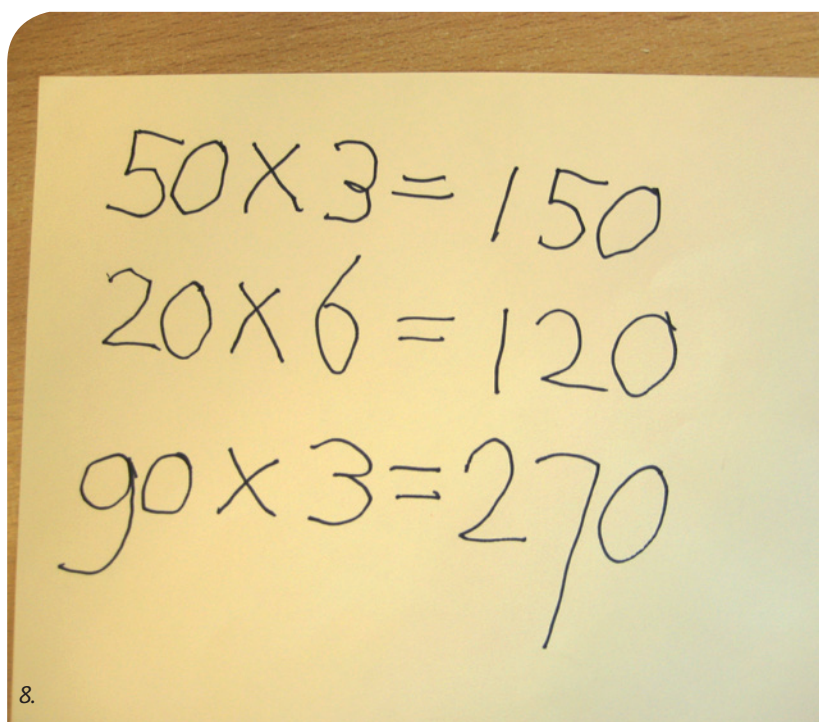 50 × 3 = 150
20 × 6 = 120
90 × 3 = 270
8.